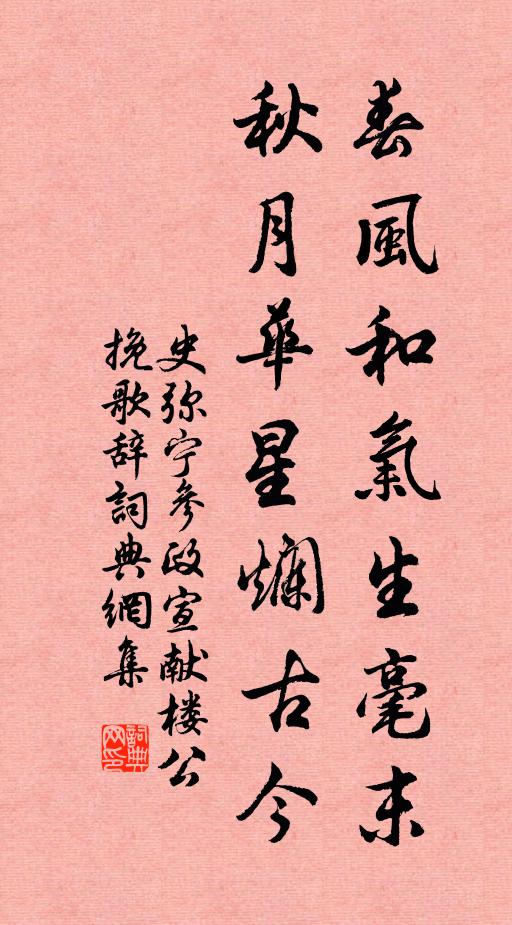 春風和氣生毫末
秋月華星爛古今
史弥宁参政宣献楼公
挽歌辞詞典網集
詞典网印